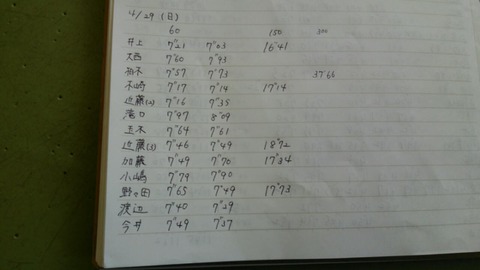 4/29 (日)
60 150 300
井上 7"21 7"03 16"41
大西 7"60 7"93
7"57 7"73 37"66
木崎 7"17 7"14 17"14
近藤(2) 7"16 7"35
滝口 7"97 8"09
玉木 7"64 7"61
近藤(3) 7"46 7"49 18"72
加藤 7"49 7"70 17"34
小嶋 7"79 7"90
野々田 7"65 7"49 17"73
渡辺 7"40 7"29
今井 7"49 7"37